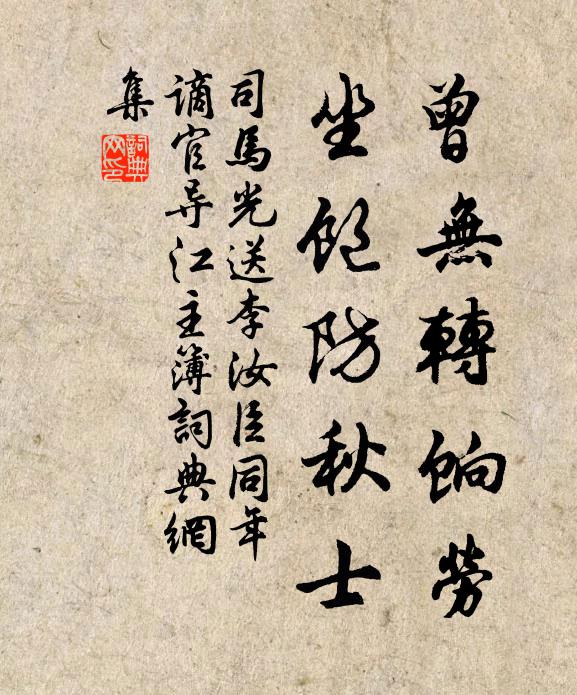 曾無轉餉勞
坐飽防秋士
司馬光送李汝臣同年
謫官导江主簿詞典網
集
詞典网印